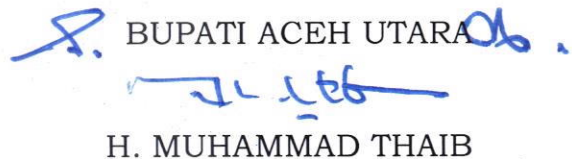 BUPATI ACEH UTARA
H. MUHAMMAD THAIB